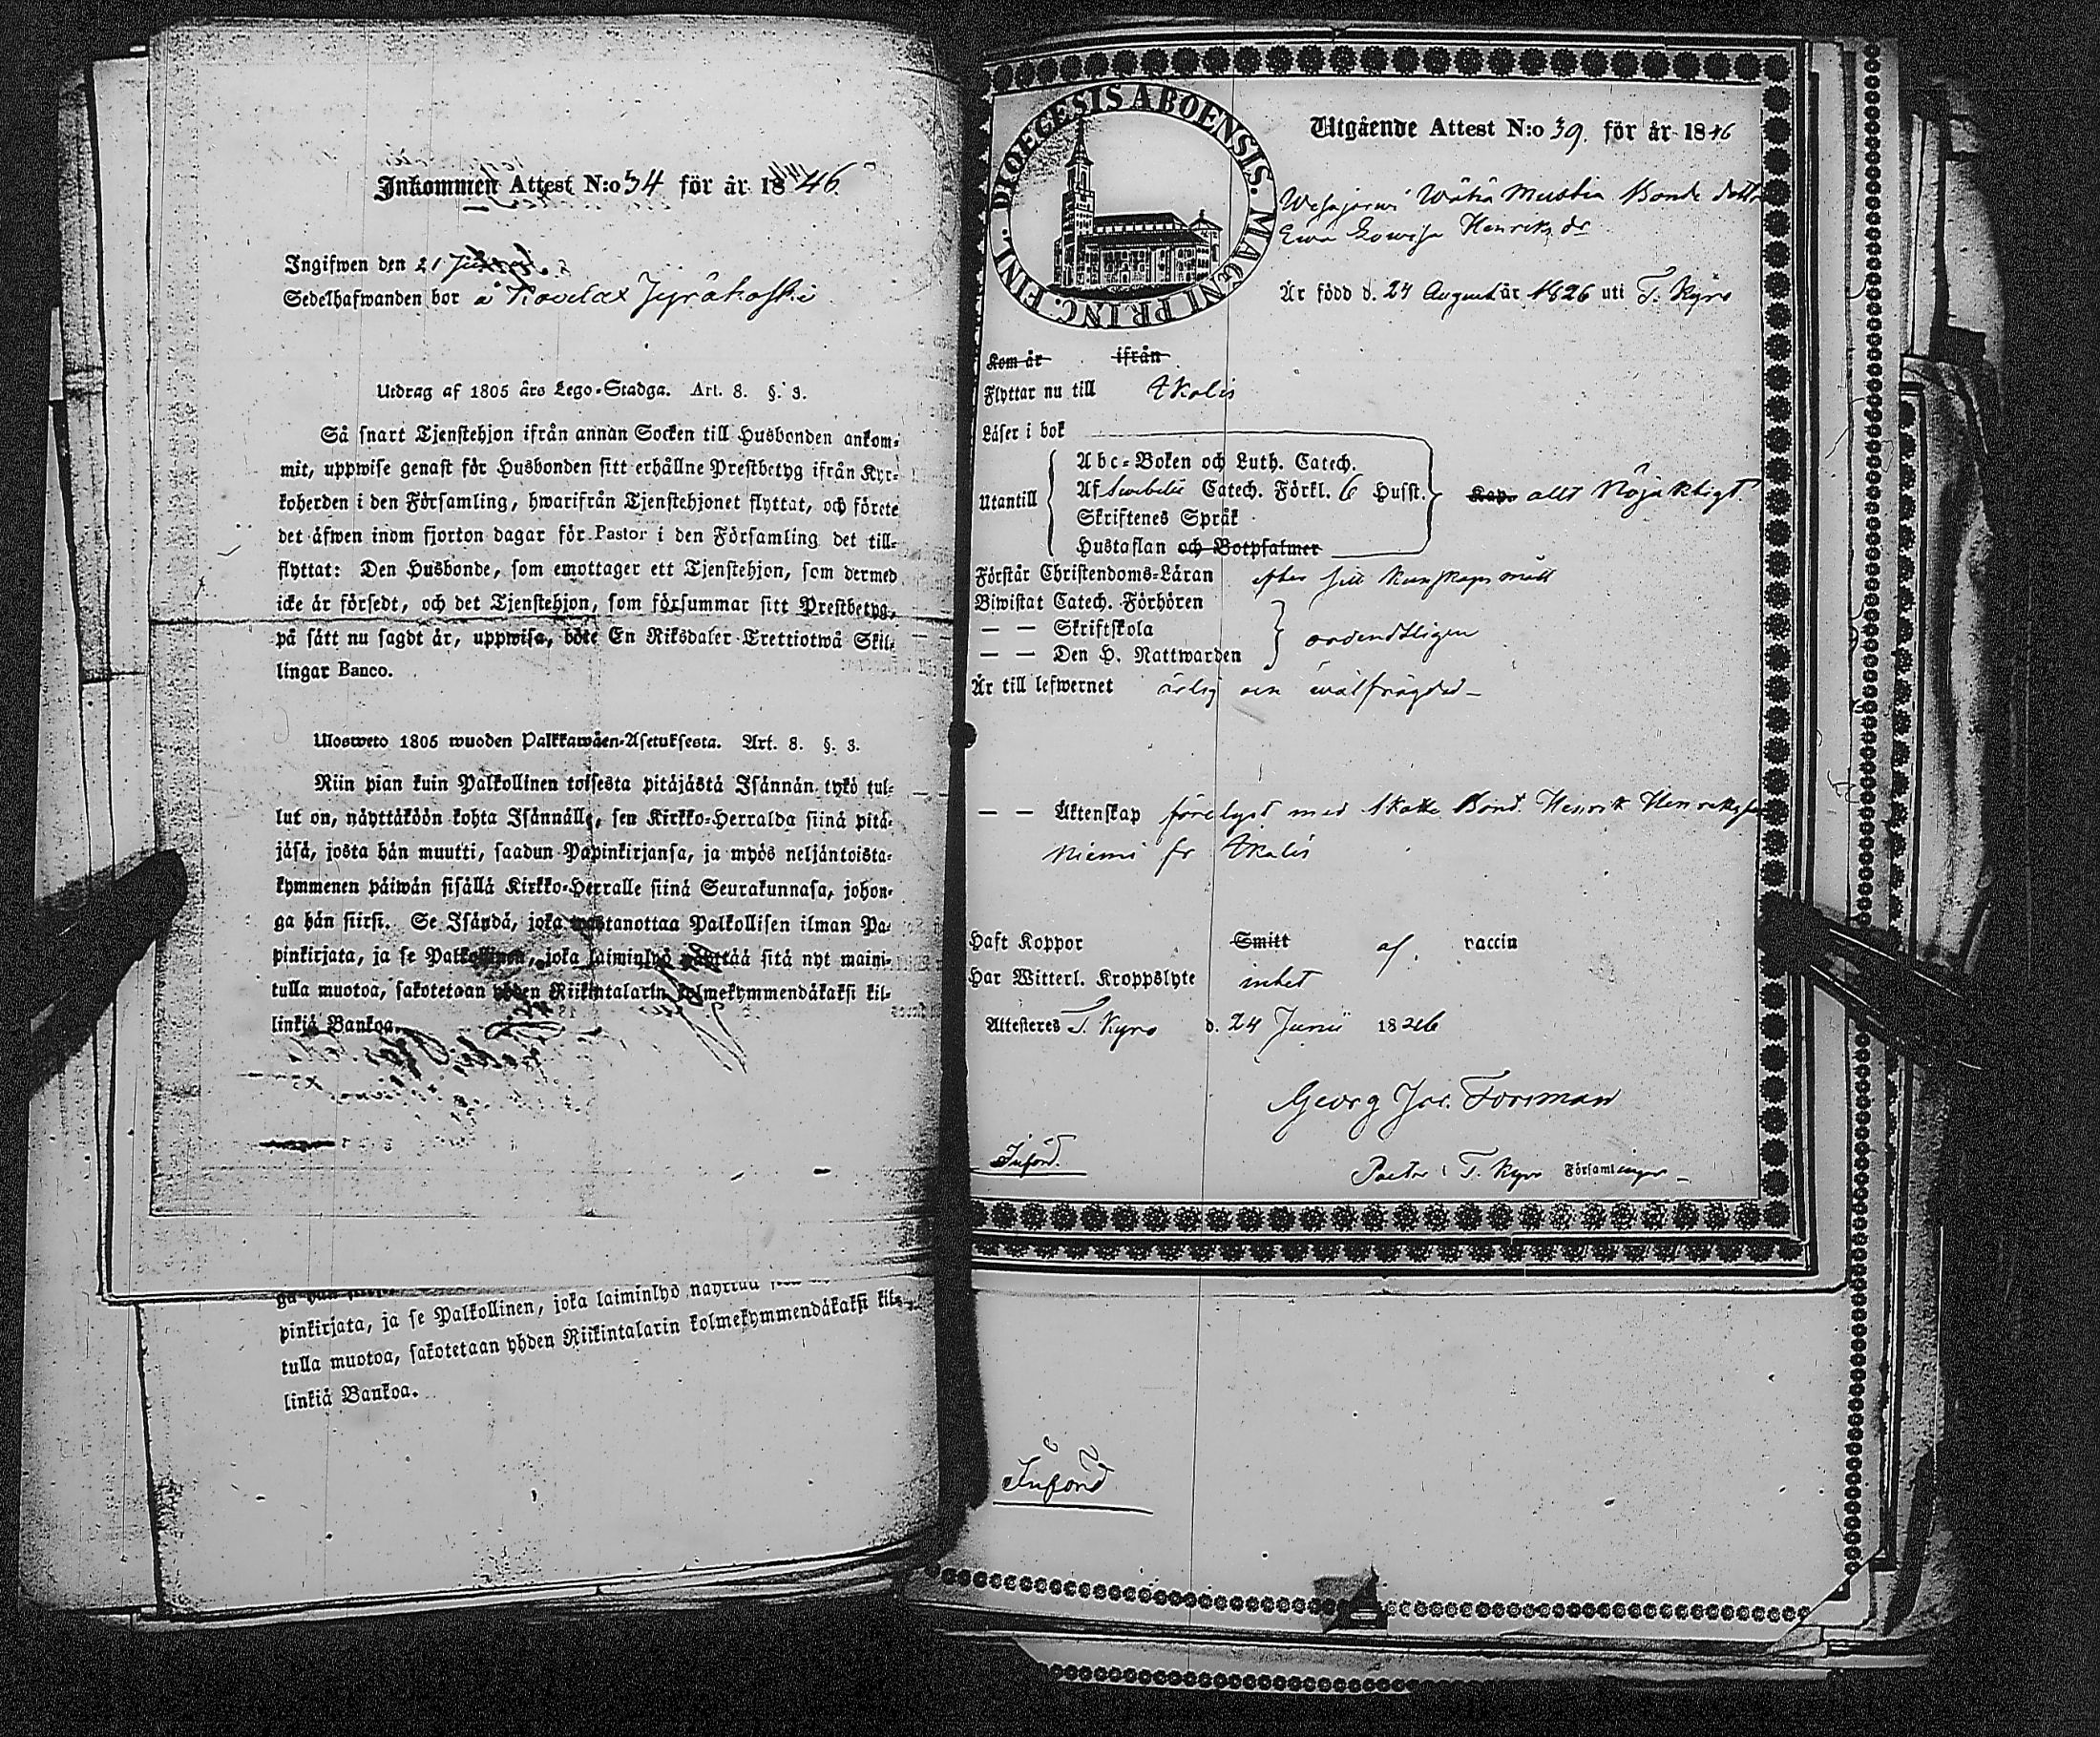 Inkommen Attest N:o 34 för år 1846.
Ingifwen den 21
Sedelhafwanden bor å
Utdrag af 1805 års Lego-Stadga. Art. 8. §. 3.
Så snart Tjenstehjon ifrån annan Socken till Husbonden ankom-
mit, uppwise genast för Husbonden sitt erhållne Prestbetyg ifrån Kyr-
koherden i den Församling, hwarifrån Tjenstehjonet flyttat, och förete
det äfwen inom fjorton dagar för Pastor i den Församling det till-
flyttat: Den Husbonde, som emottager ett Tjenstehjon, som dermed
icke är försedt, och det Tjenstehjon, som försummar sitt Prestbetyg,
på sätt nu sagdt är, uppwisa, böte En Riksdaler Trettiotwå Skil-
lingar Banco.
Ulosweto 1805 wuoden Palkkawäen-Asetuksesta. Art. 8. §. 3.
Niin pian kuin Palkollinen toisesta pitäjästä Isännän tykö tul-
lut on, näyttäköön kohta Isännälle, sen Kirkko-Herralda siinä pitä-
jäsä, josta hän muutti, saadun Papinkirjansa, ja myös neljäntoista-
kymmenen päiwän sisällä Kirkko-Herralle siinä Seurakunnasa, johon-
ga hän siirsi. Se Isändä, joka wastanottaa Palkollisen ilman Pa-
pinkirjata, ja se Palkollinen, joka laiminlyö näyttää sitä nyt maini-
tulla muotoa, sakotetaan yhden Riikintalarin kolmekymmendäkaksi kil-
linkiä Bankoa.
pinkirjata, ja se Palkollinen, joka laiminlyö näyttää
tulla muotoa, sakotetaan yhden Riikintalarin kolmekymmendäkaksi kil-
linkiä Bankoa.
DIOECESIS ABOENSIS. MAGNI PRINC. FINL.
Utgående Attest N:o 39. för år 1846
Wesajärwi Wähä Mustia Bonde dottr
Ewa Lowisa Henriks dr
Är född d. 24 Augusti år 1826 uti T. Kyro
Kom år ifrån
Flyttar nu till Ikalis
Läser i bok
Utantill
Abc-Boken och Luth. Catech.
Af Swebelii Catech. Förkl. 6 Husst.
Skriftenes Språk
Hustaflan och Botpsalmer
Kap. allt Nöjaktigt.
Förstår Christendoms-Läran efter sitt kunskaps mått
Biwistat Catech. Förhören
— — Skriftskola
— — Den H. Nattwarden
ordentligen
Är till lefwernet ärlig och wälfrägdad
— — Äktenskap förelyst med Skatte Bond. Henrik Henriksson
Niemi fr Ikalis
Haft Koppor Smitt af. vaccin
Har Witterl. Kroppslyte intet
Attesteres T. Kyro d. 24 Junii 1846
Georg Jac. Forsman
Pastor i T. Kyro Församlingar
Införd.
Införd